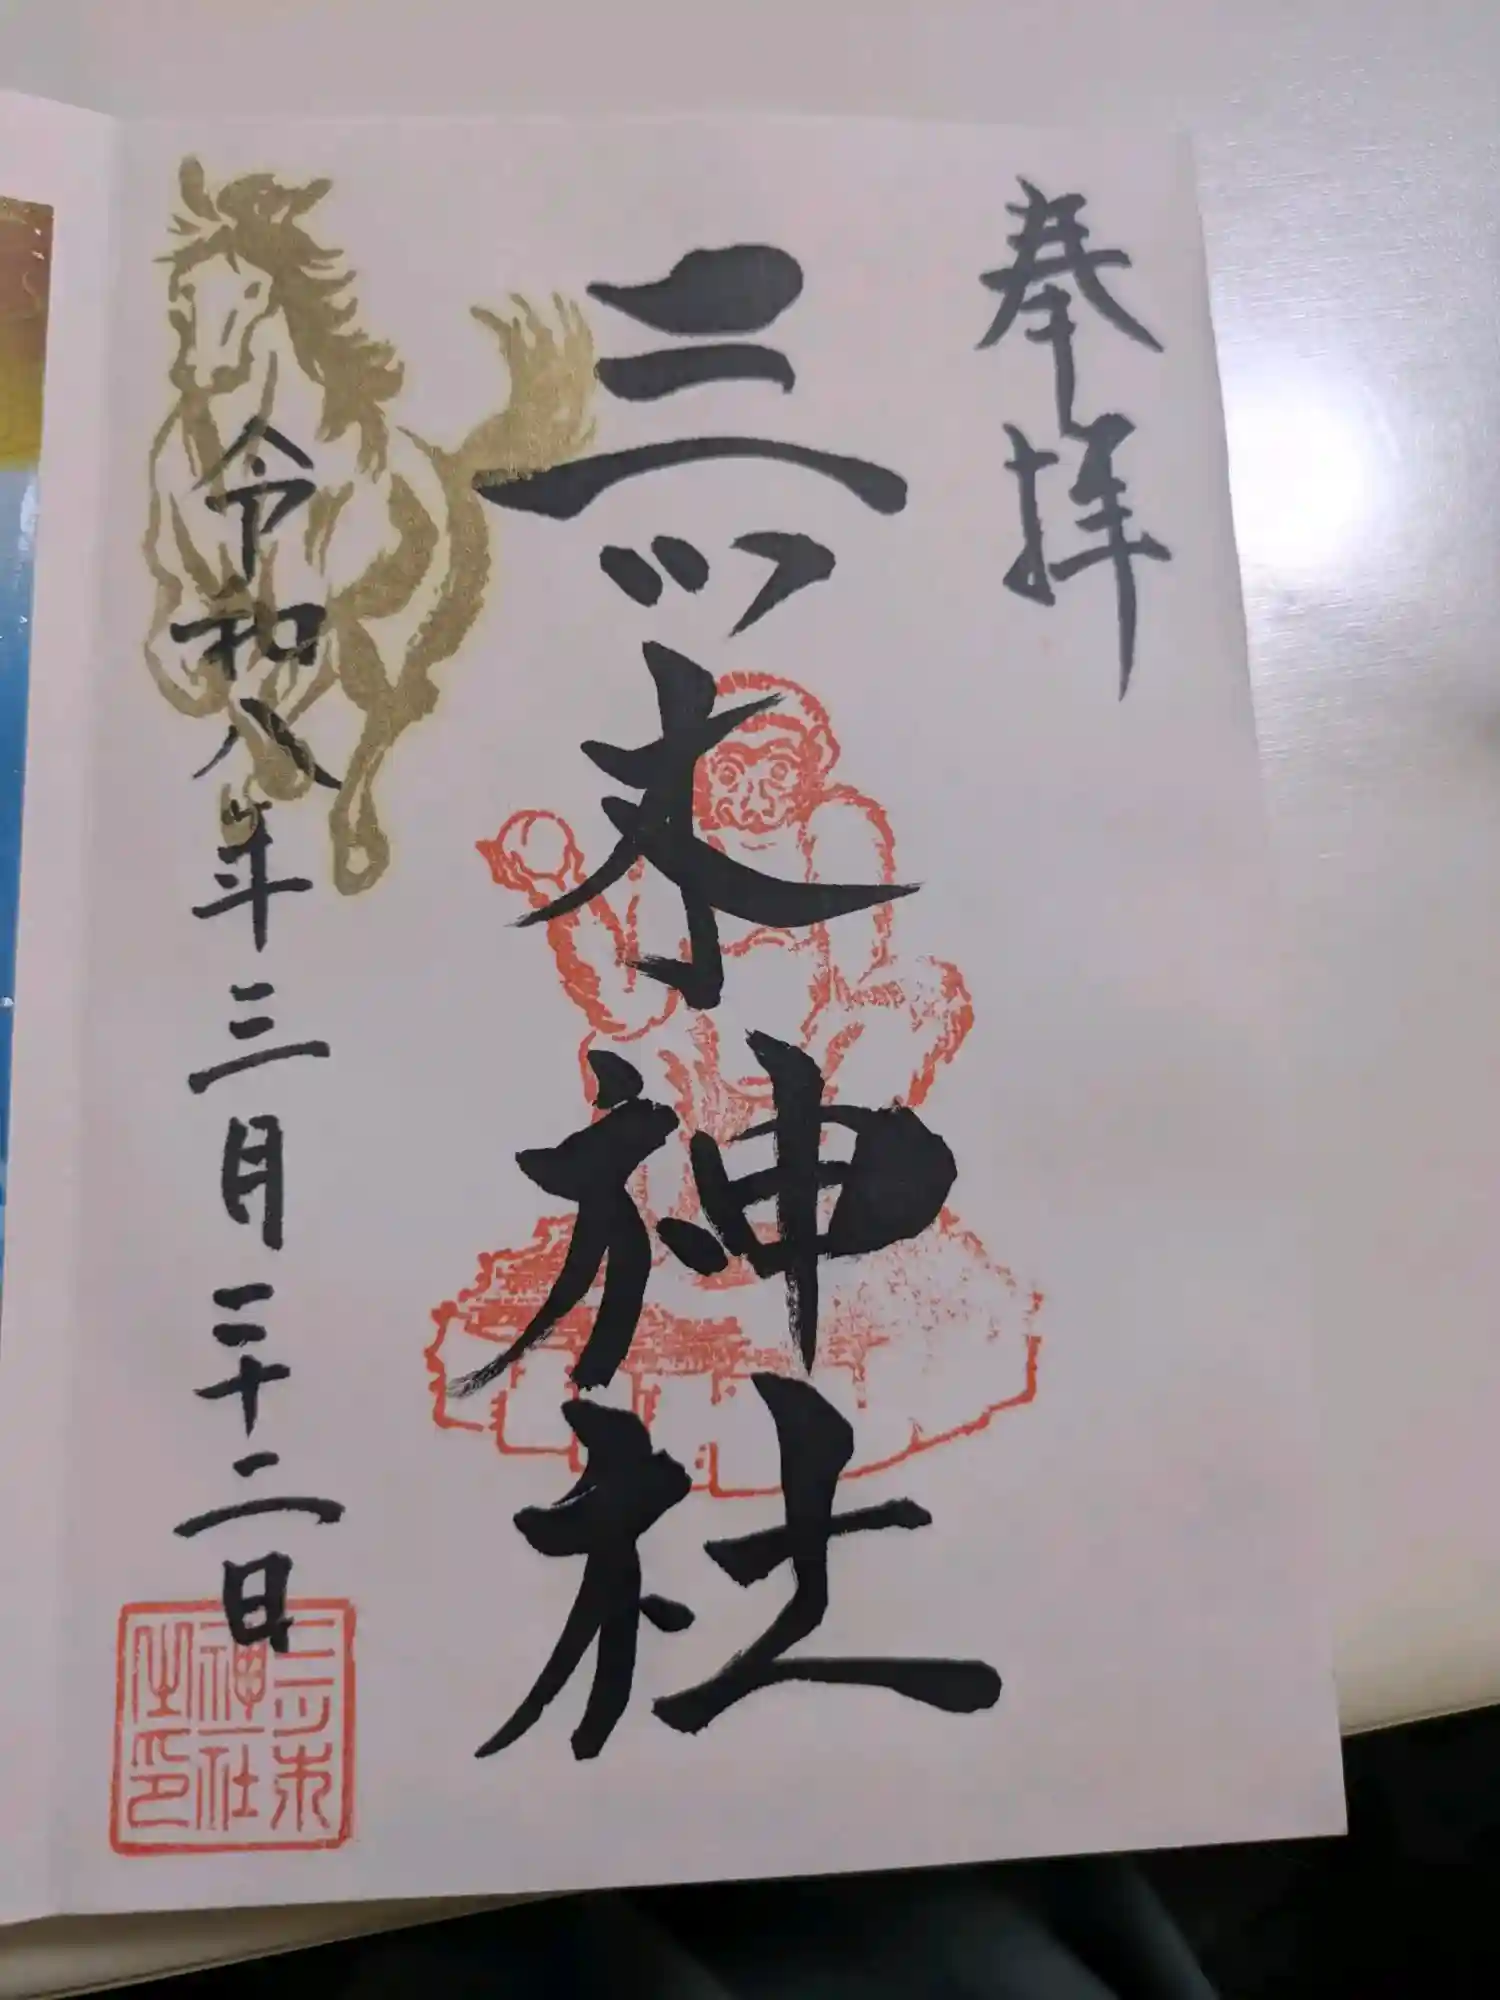 奉拝
三ツ木神社
令和八年三月二十二日
三ツ木
神社
之印